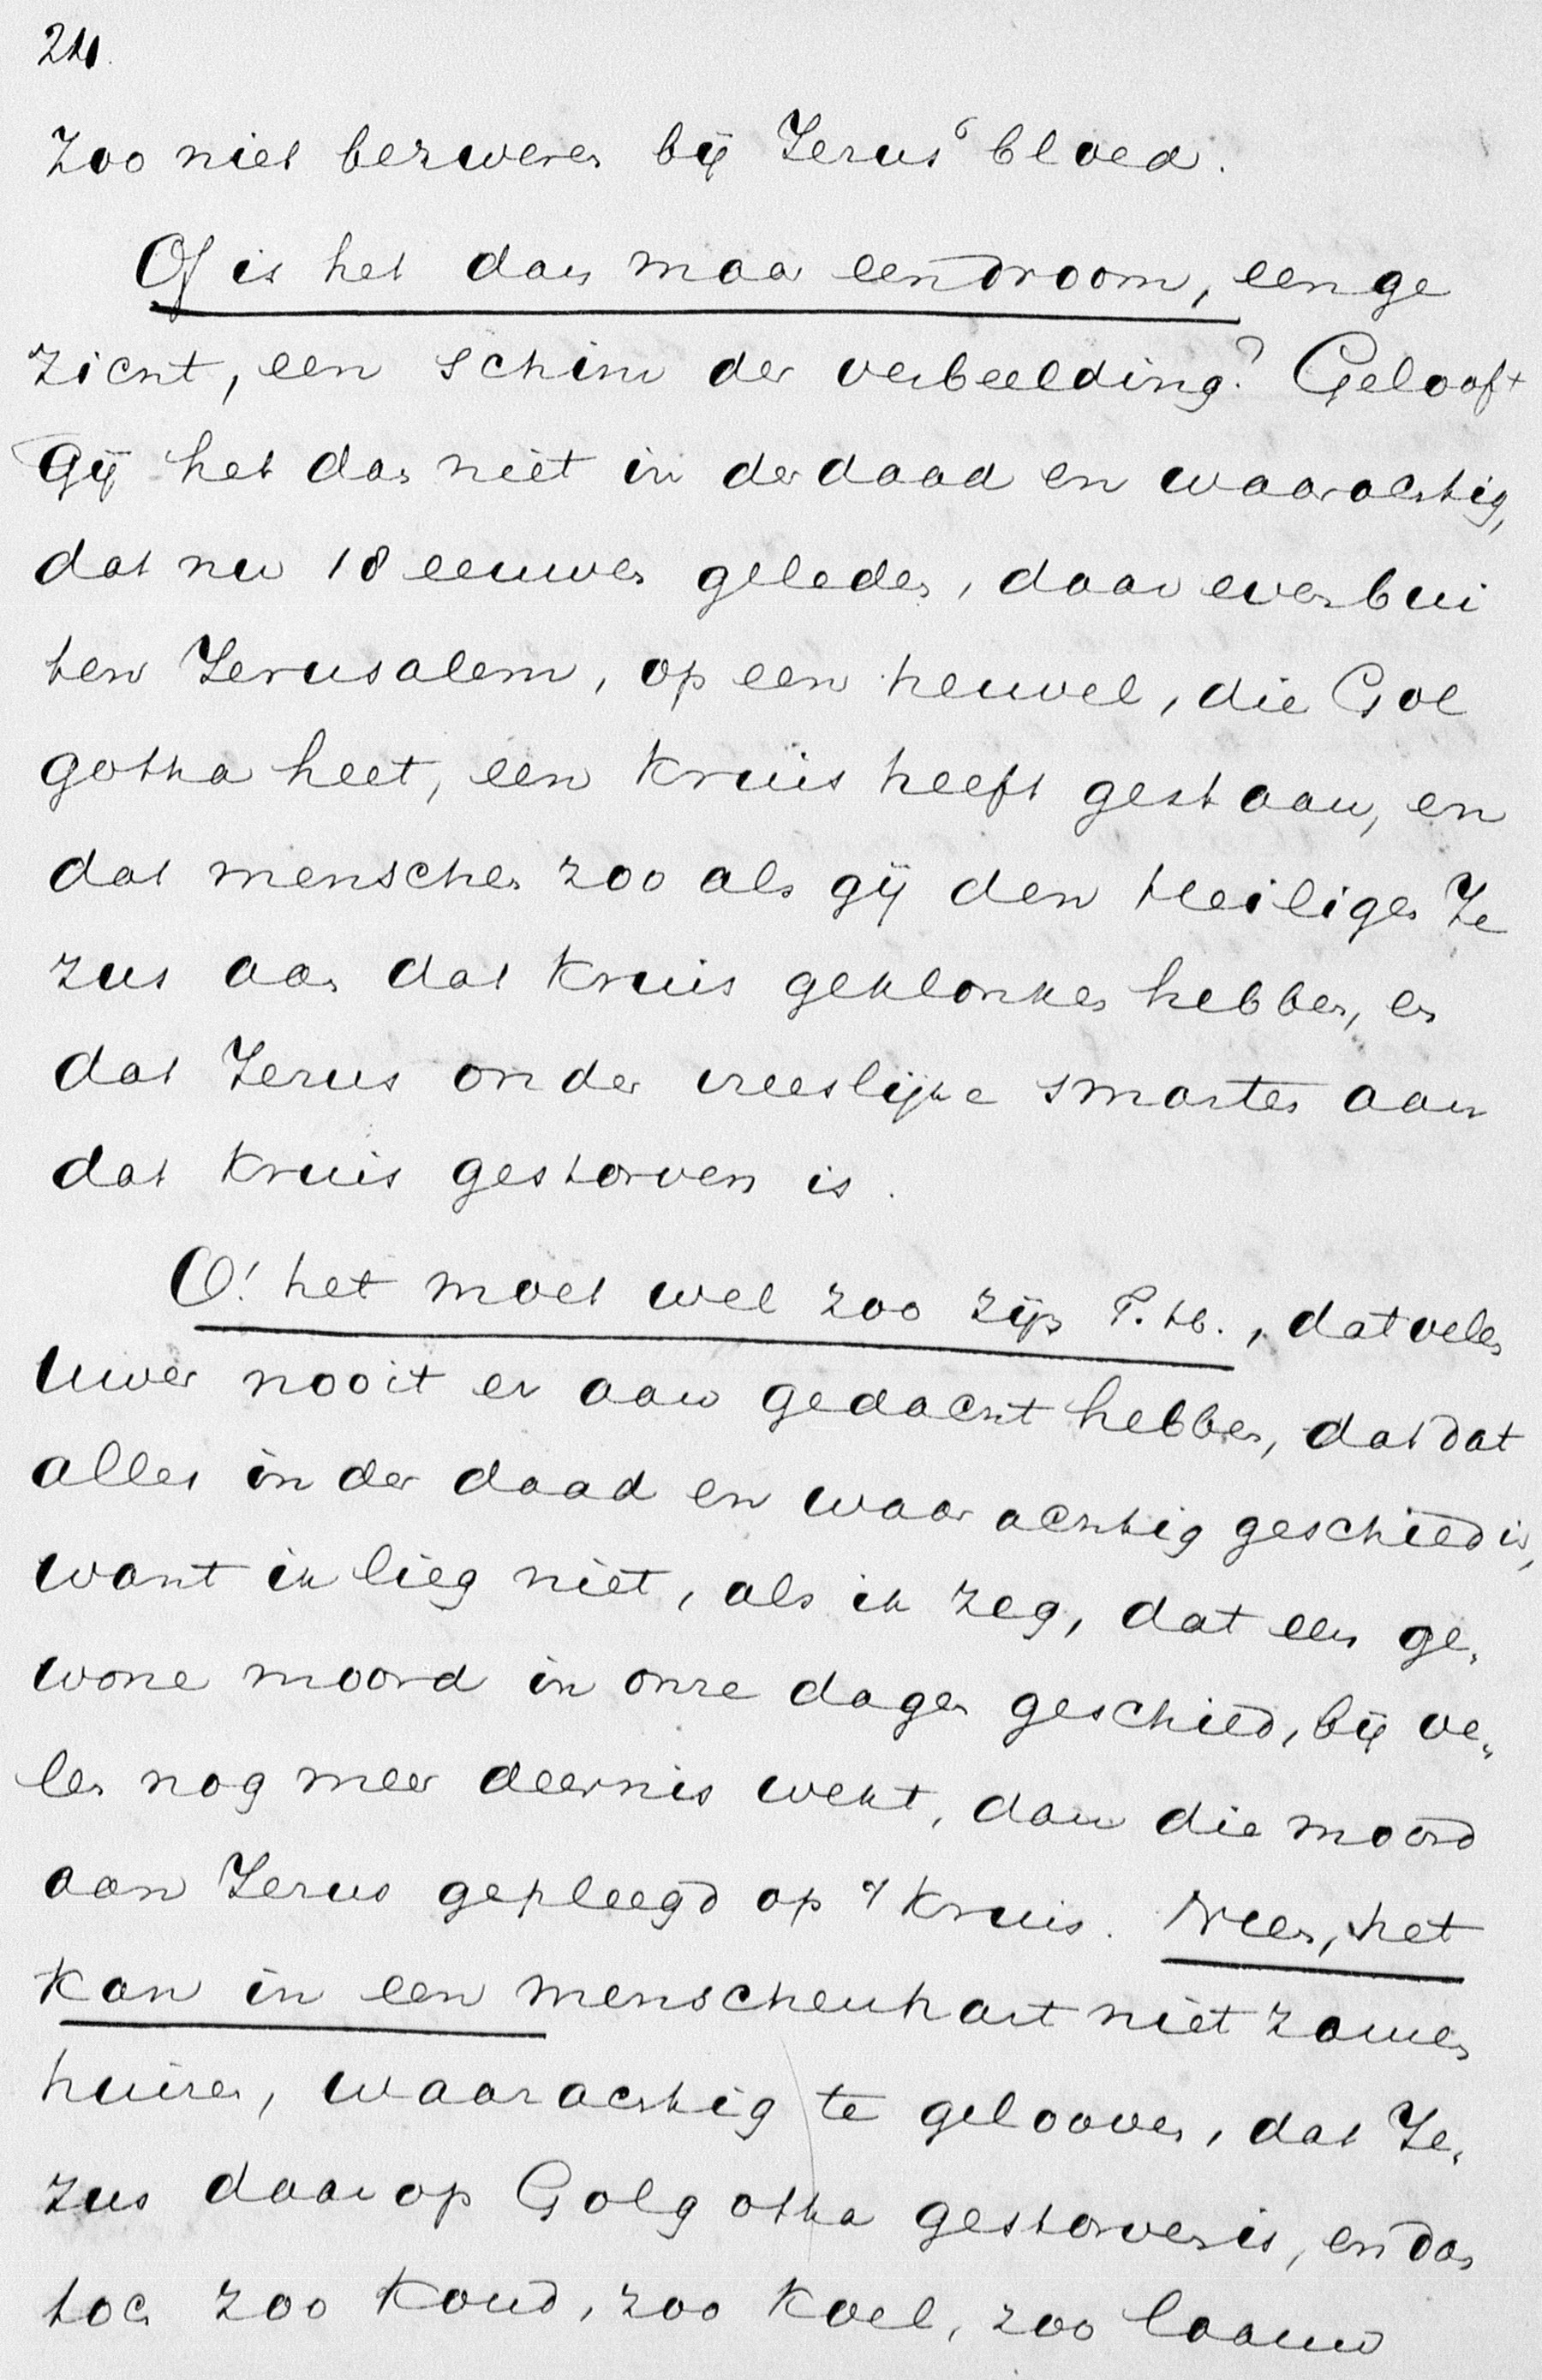 24.
zoo niet bezweren bij Jezus' bloed.
Of is het dan maar een droom, een ge
zicht, een schim der verbeelding? Gelooft
Gij het dan niet in der daad en waarachtig,
dat nu 18 eeuwen geleden, daar even bui
ten Jerusalem, op een heuvel, die Gol
gotha heet, een Kruis heeft gestaan, en
dat menschen zoo als gij den Heiligen Je
zus aan dat Kruis geklonken hebben, en
dat Jezus onder vreeslijke smarten aan
dat Kruis gestorven is.
O! het moet wel zoo zijn T. H., dat velen
Uwer nooit er aan gedacht hebben, dat dat
alles in der daad en waarachtig geschied is,
want ik lieg niet, als ik zeg, dat een ge„
wone moord in onze dagen geschied, bij ve„
len nog meer deernis wekt, dan die moord
aan Jezus gepleegd op 't Kruis. Neen, het
Kan in een menschenhart niet zamen
huizen, waarachtig te gelooven, dat Je„
zus daar op Golgotha gestorven is, en dan
toch zoo Koud, zoo Koel, zoo laauw